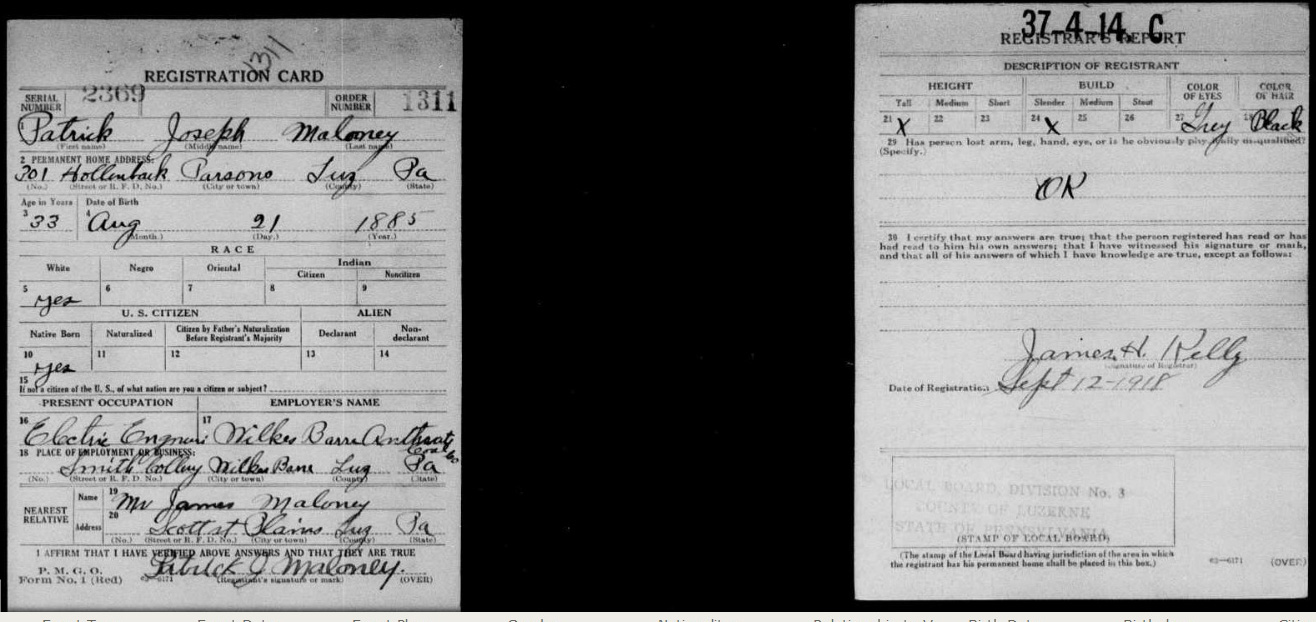 1311
REGISTRATION CARD
SERIAL NUMBER 2369 ORDER NUMBER 1311
1 Patrick Joseph Maloney
(First name) (Middle name) (Last name)
2 PERMANENT HOME ADDRESS:
301 Hollenback Parsons Luz Pa
(No.) (Street or R. F. D. No.) (City or town) (County) (State)
Age in Years Date of Birth
3 33 4 Aug 21 1885
(Month.) (Day.) (Year.)
RACE
White Negro Oriental Indian
Citizen Noncitizen
5 yes 6 7 8 9
U. S. CITIZEN ALIEN
Native Born Naturalized Citizen by Father's Naturalization Before Registrant's Majority Declarant Non-declarant
10 yes 11 12 13 14
15
If not a citizen of the U. S., of what nation are you a citizen or subject?
PRESENT OCCUPATION EMPLOYER'S NAME
16 Electric 17 Wilkes Barre Coal Co
18 PLACE OF EMPLOYMENT OR BUSINESS:
Smith Wilkes Barre Luz Pa
(No.) (Street or R. F. D. No.) (City or town) (County) (State)
NEAREST RELATIVE Name 19 Mr James Maloney
Address 20 Scott st Plains Luz Pa
(No.) (Street or R. F. D. No.) (City or town) (County) (State)
I AFFIRM THAT I HAVE VERIFIED ABOVE ANSWERS AND THAT THEY ARE TRUE
P. M. G. O.
Form No. 1 (Red) Patrick J Maloney.
(Registrant's signature or mark) (OVER)
37-4-14. C
REGISTRAR'S REPORT
DESCRIPTION OF REGISTRANT
HEIGHT BUILD COLOR OF EYES COLOR OF HAIR
Tall Medium Short Slender Medium Stout
21 X 22 23 24 X 25 26 27 Grey Black
29 Has person lost arm, leg, hand, eye, or is he obviously physically disqualified?
(Specify.)
OK
30 I certify that my answers are true; that the person registered has read or has
had read to him his own answers; that I have witnessed his signature or mark,
and that all of his answers of which I have knowledge are true, except as follows:
James H. Kelly
(Signature of Registrar)
Date of Registration Sept 12-1918
LOCAL BOARD, DIVISION No. 3
COUNTY OF LUZERNE
STATE OF PENNSYLVANIA
(STAMP OF LOCAL BOARD)
(The stamp of the Local Board having jurisdiction of the area in which
the registrant has his permanent home shall be placed in this box.)
(OVER)